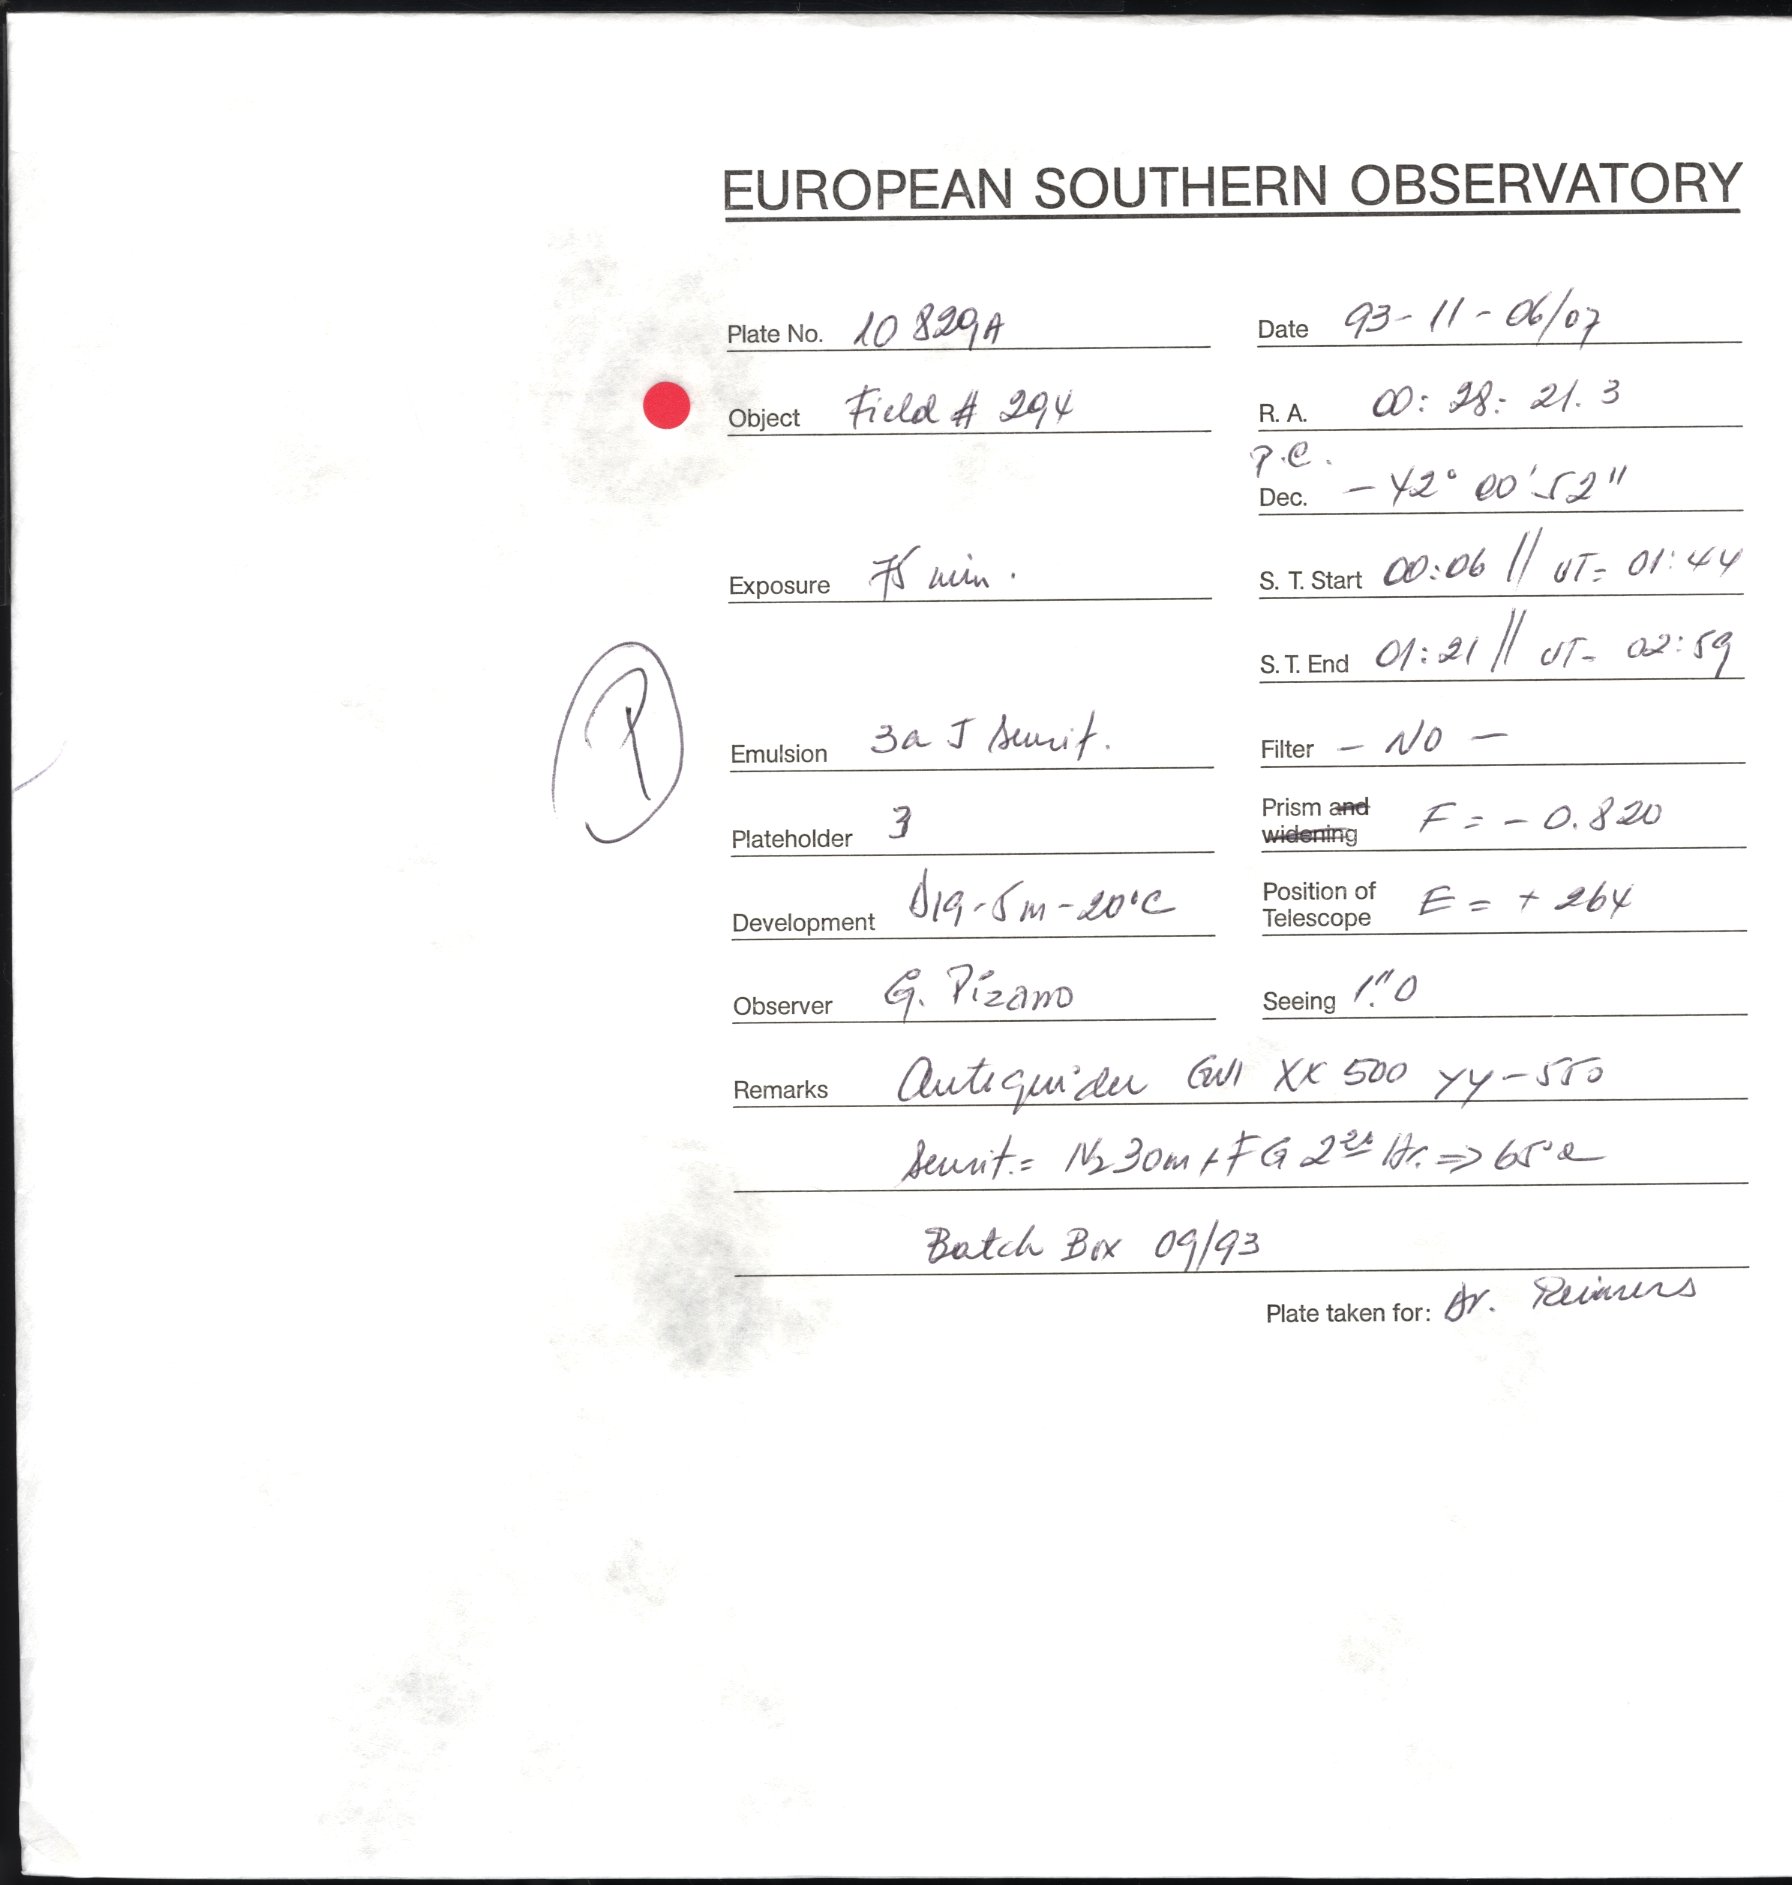 EUROPEAN SOUTHERN OBSERVATORY
Plate No. 10829A Date 93-11-06/07
Object Field # 294 R. A. 00: 28: 21. 3
P.C.
Dec. - 42° 00' 52"
Exposure 75 min. S. T. Start 00:06 // UT= 01:44
S. T. End 01:21 // UT- 02:59
P
Emulsion 3a J Sensit. Filter - NO -
Plateholder 3 Prism and widening F = - 0.820
Development D19-5m-20°C Position of Telescope E = + 264
Observer G. Pizarro Seeing 1."0
Remarks Autoguider XX 500 YY-550
Sensit.= N2 30m + FG 2 Hr. => 65°C
Batch Box 09/93
Plate taken for: Dr. Reimers